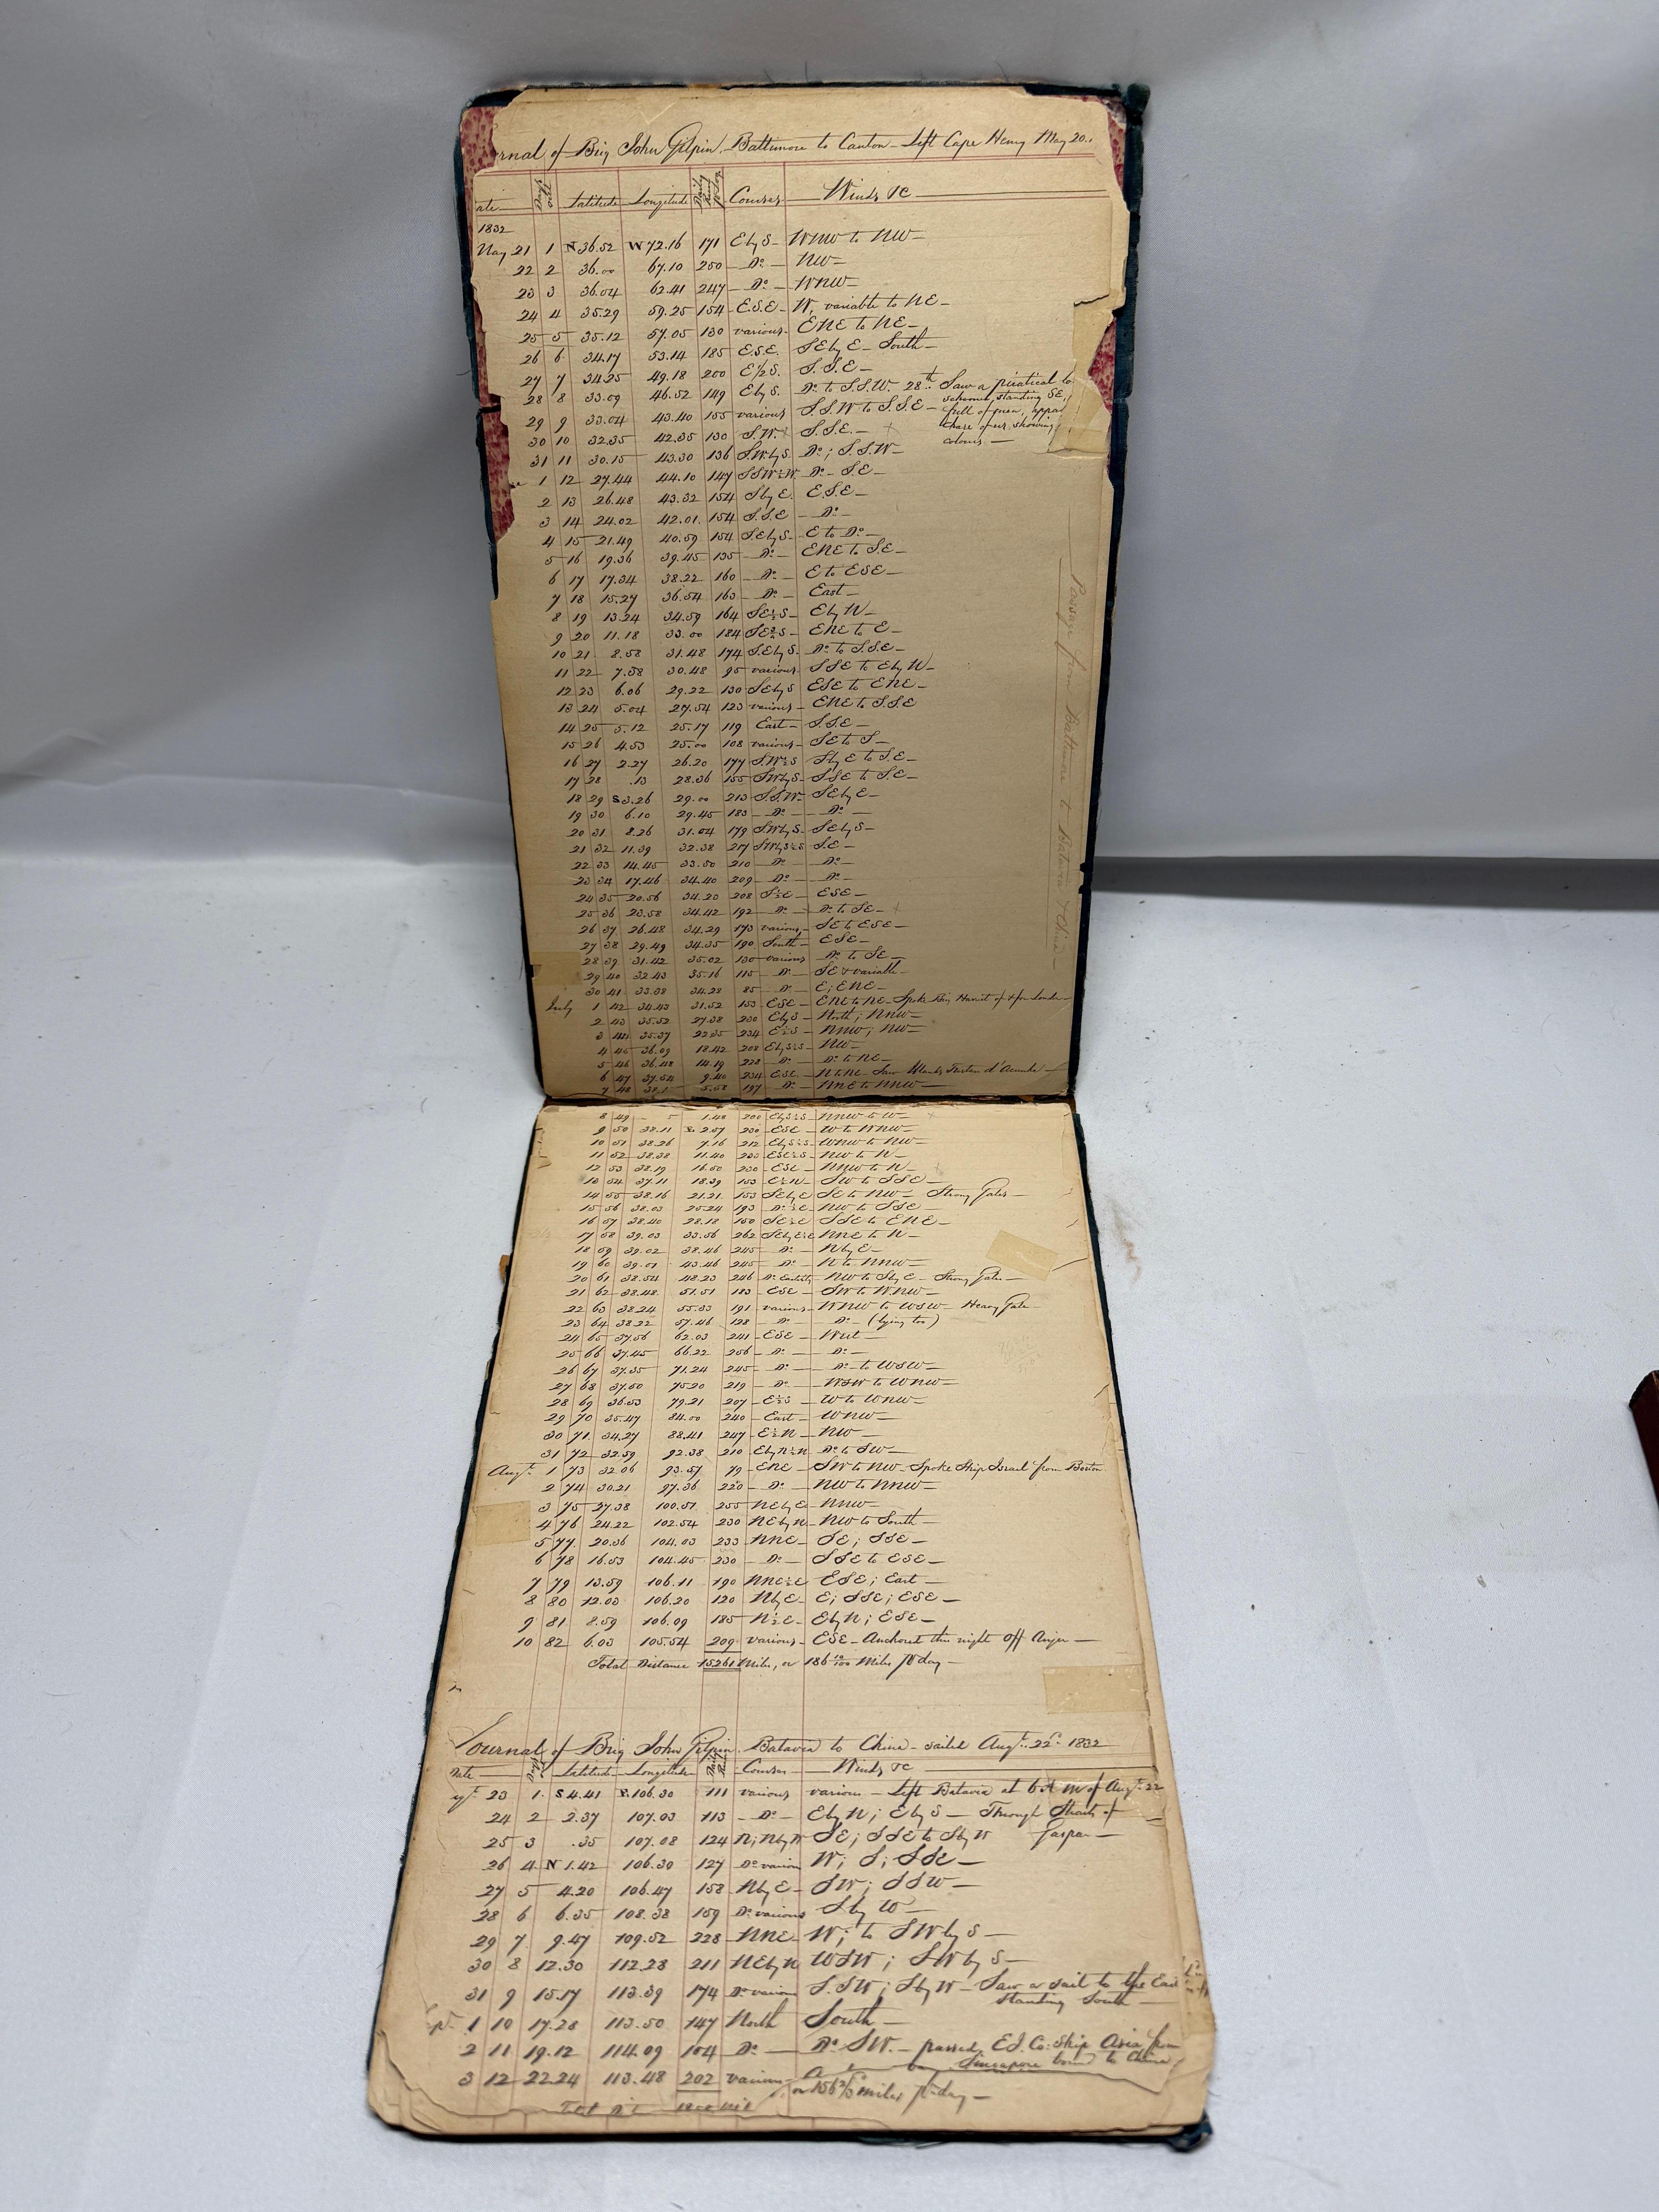 rnal of Brig John Gilpin. Baltimore to Canton - Left Cape Henry May 20.
ate Days out Latitude Longitude Daily Courses Winds &c
1832
May 21 1 N 36.52 W 72.16 171 E by S WNW to NW
22 2 36.00 67.10 250 Do NW
23 3 36.04 62.41 247 Do WNW
24 4 35.29 59.25 154 E.S.E. W, variable to NE
25 5 35.12 57.05 130 various ENE to NE
26 6 34.17 53.14 185 E.S.E. SE by E South
27 7 34.25 49.18 200 E 1/2 S. S.S.E
28 8 33.09 46.52 149 E by S. Do to S.S.W. 28th Saw a piratical lo
29 9 33.04 43.40 155 various S.S.W to S.S.E schooner, standing SE,
full of men,
chase of us, showing
30 10 32.35 42.35 130 S.W. S.S.E. colours.
31 11 30.15 43.30 136 SW by S Do; S.S.W
1 12 27.44 44.10 147 SSW 1/2 W Do SE
2 13 26.48 43.32 154 S by E. E.S.E
3 14 24.02 42.01 154 S.S.E Do
4 15 21.49 40.59 154 SE by S E to Do
5 16 19.36 39.45 135 Do ENE to S.E
6 17 17.34 38.22 160 Do E to ESE
7 18 15.27 36.54 163 Do East
8 19 13.24 34.59 164 SE 1/2 S E by N
9 20 11.18 33.00 184 ENE to E
10 21 8.58 31.48 174 S.E by S. Do to S.S.E
11 22 7.58 30.48 95 various SSE to E by N
12 23 6.06 29.22 130 SE by S ESE to ENE
13 24 5.04 27.54 123 various ENE to S.S.E
14 25 5.12 25.17 119 East S.S.E
15 26 4.53 25.00 108 various SE to S
16 27 2.27 26.20 177 S.W 1/2 S S by E to S.E
17 28 .13 28.36 155 SW by S SSE to S.E
18 29 S 3.26 29.00 213 S.S.W. SE by E
19 30 6.10 29.45 183 Do Do
20 31 8.26 31.04 179 SW by S SE by S
21 32 11.39 32.38 217 SW by S 1/2 S S.E
22 33 14.45 33.50 210 Do Do
23 34 17.46 34.40 209 Do Do
24 35 20.56 34.23 208 S 1/2 E ESE
25 36 23.58 34.42 192 Do Do to SE
26 37 26.48 34.29 173 various SE to ESE
27 38 29.49 34.35 190 South ESE
28 39 31.42 35.02 130 various Do to SE
29 40 32.43 35.16 115 Do SE & variable
30 41 33.38 34.28 85 Do E; ENE
July 1 42 34.43 31.52 153 ESE ENE to NE Spoke Brig of & for London
2 43 35.52 27.38 230 E by S North; NNW
3 44 35.37 22.35 234 E 1/2 S NNW; NW
4 45 36.09 18.42 208 E by S 1/2 S NW
5 46 36.48 14.19 228 Do Do to NE
6 47 37.54 9.40 234 ESE N to NE Saw Islands Tristan d'Acunha
7 48 5.58 197 Do NNE to NNW
8 49 1.48 200 E by S 1/2 S NNW to W
9 50 38.11 E. 2.57 230 ESE W to WNW
10 51 38.26 7.16 212 E by S 1/2 S WNW to NW
11 52 38.38 11.40 223 ESE 1/2 S NW to N
12 53 38.19 16.50 230 ESE NNW to N
13 54 37.11 18.39 153 E 1/2 N SW to SSE
14 55 38.16 21.21 153 SE by E SE to NW Strong Gales
15 56 38.03 25.24 193 Do 1/2 E NW to SSE
16 57 38.40 28.18 150 SE 1/2 E SSE to ENE
17 58 39.03 33.56 262 SE by E 1/2 E NNE to N
18 59 39.02 38.46 245 Do N by E
19 60 39.01 43.46 245 Do N to NNW
20 61 38.54 48.23 246 Do Easterly NW to S by E Strong Gales
21 62 38.48 51.51 183 ESE SW to WNW
22 63 38.24 55.33 191 various WNW to WSW Heavy Gale
23 64 38.22 57.46 128 Do Do (lying too)
24 65 37.56 62.03 241 ESE West
25 66 37.45 66.22 256 Do Do
26 67 37.35 71.24 245 Do Do to WSW
27 68 37.50 75.20 219 Do WSW to WNW
28 69 36.53 79.21 207 E 1/2 S W to WNW
29 70 35.47 84.00 240 East WNW
30 71 34.27 88.41 247 E 1/2 N NW
31 72 32.59 92.38 210 E by N 1/2 N Do to SW
Augt. 1 73 32.06 93.57 79 ENE SW to NW Spoke Ship Israel from Boston
2 74 30.21 97.36 220 Do NW to NNW
3 75 27.38 100.51 255 NE by E NNW
4 76 24.22 102.54 230 NE by N NW to South
5 77 20.36 104.03 233 NNE SE; SSE
6 78 16.53 104.45 230 Do SSE to ESE
7 79 13.59 106.11 190 NNE 1/2 E ESE; East
8 80 12.03 106.20 120 N by E E; SSE; ESE
9 81 8.59 106.09 185 N 1/2 E E by N; ESE
10 82 6.03 105.54 209 various ESE Anchored this night off Anjer
Total Distance 15261 Miles, or 186 10/100 Miles pr day
Passage from Baltimore to Batavia & China
Journal of Brig John Gilpin. Batavia to China - sailed Augt. 22d. 1832
Date Days Latitude Longitude Courses Winds &c
gt. 23 1. S 4.41 E. 106.30 111 various various Left Batavia at 6 A M of Augt. 22
24 2 2.37 107.03 113 Do E by N; E by S Through Straits of
25 3 .35 107.08 124 N; N by W SE; SSE to S by W Gaspar
26 4 N 1.42 106.30 127 Do various W; S; SSE
27 5 4.20 106.47 158 N by E SW; SSW
28 6 6.35 108.38 159 Do various S by W
29 7 9.47 109.52 228 NNE W; to SW by S
30 8 12.30 112.28 211 NE by N WSW; SW by S
31 9 15.17 113.39 174 Do various S.SW; S by W Saw a sail to the East
standing South
1 10 17.28 113.50 147 North South
2 11 19.12 114.09 104 Do Do SW. passed E.I. Co. Ship Asia, from
Singapore bound to China
3 12 22.24 113.48 202 various
or 156 2/3 miles pr day